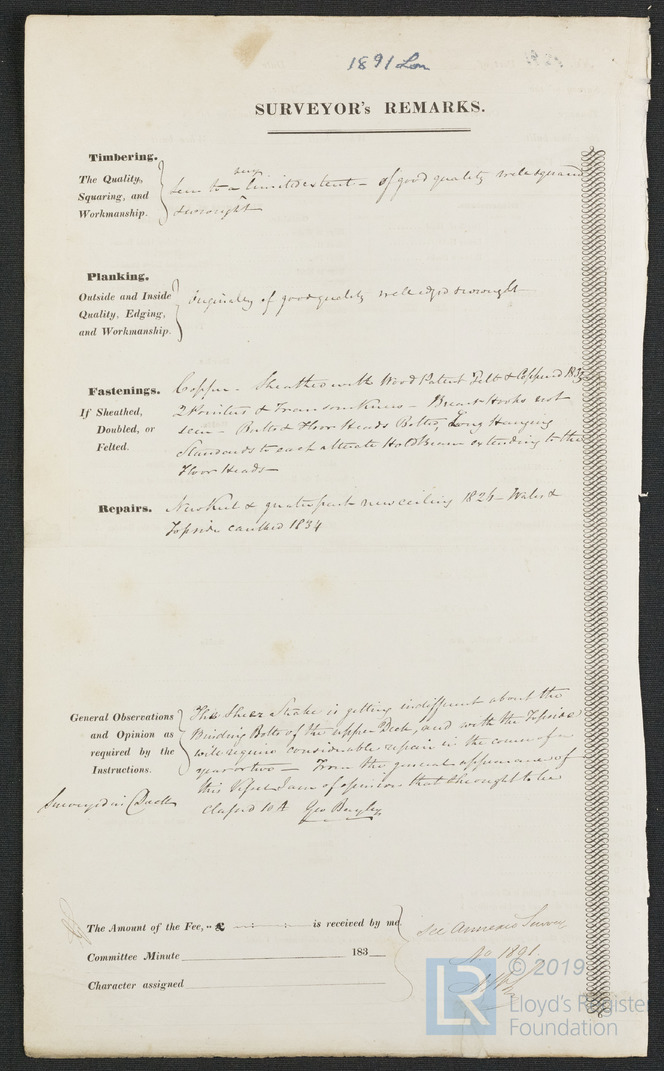 1891 Lon
SURVEYOR's REMARKS.
Timbering.
The Quality,
Squaring, and
Workmanship.
very
Seen to a limited extent – of good quality well squared
& wrought
Planking.
Outside and Inside
Quality, Edging,
and Workmanship.
Originally of good quality well edged & wrought
Fastenings.
If Sheathed,
Doubled, or
Felted.
Copper – Sheathed with Wood Patent Felt & Coppered
2 Pointers & Transom Knees – Breast Hooks not
seen – Butts & Floor Heads Bolted, Long Hanging
Standards to each alternate Hold Beam extending to the
Floor Heads –
Repairs.
New Keel & greater part new ceiling 1826 – Wales &
Topside caulked 1834
General Observations
and Opinion as
required by the
Instructions.
The Sheer Strake is getting indifferent about the
Binding Bolts of the upper Deck, and with the Topside
will require considerable repair in the course of a
year or two – From the general appearance of
this Vessel I am of opinion that she ought to be
Classed 10 A Geo Bayley
Surveyed in Dock
The Amount of the Fee, .. £ is received by me
Committee Minute 183
Character assigned
see Annexed Survey
No 1891
LR
© 2019
Lloyd's Register
Foundation